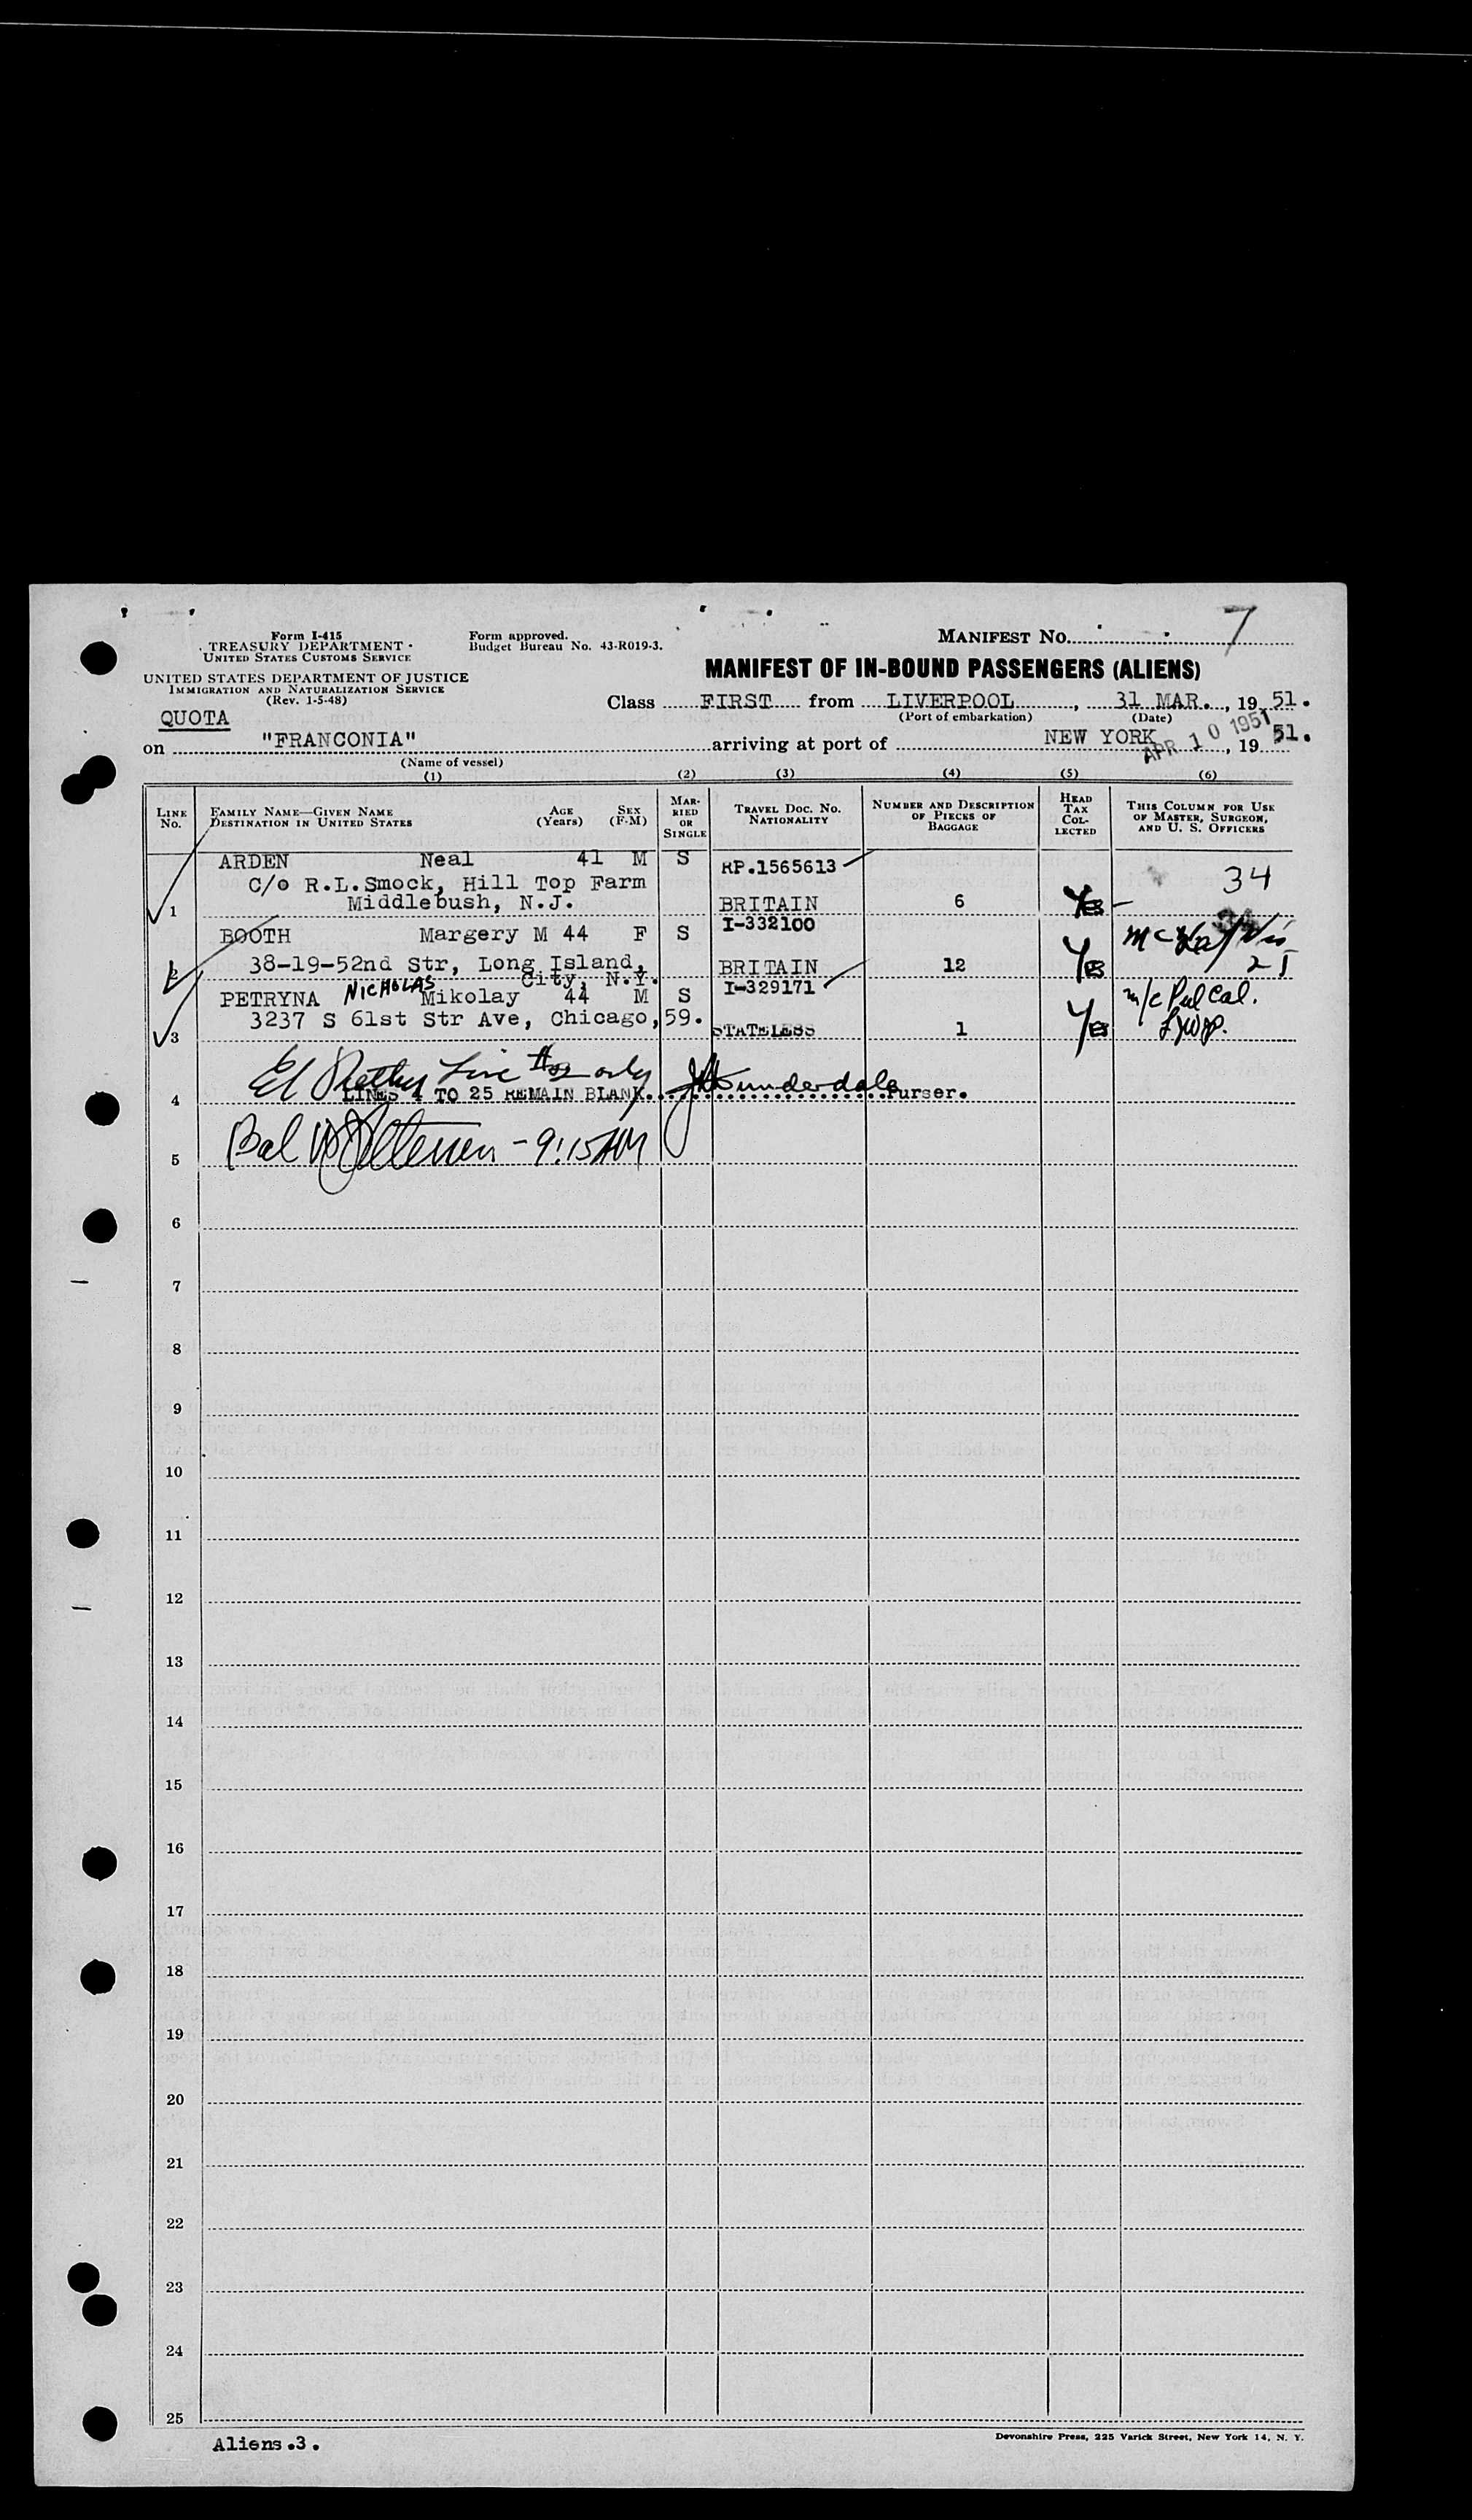 Form I-415
TREASURY DEPARTMENT
UNITED STATES CUSTOMS SERVICE
Form approved.
Budget Bureau No. 43-R019-3.
MANIFEST NO. 7
UNITED STATES DEPARTMENT OF JUSTICE
IMMIGRATION AND NATURALIZATION SERVICE
(Rev. 1-5-48)
MANIFEST OF IN-BOUND PASSENGERS (ALIENS)
QUOTA
Class FIRST from LIVERPOOL, 31 MAR., 19 51.
(Port of embarkation) (Date)
on "FRANCONIA" arriving at port of NEW YORK, 19 51.
APR 10 1951
(Name of vessel)
(1) (2) (3) (4) (5) (6)
LINE NO.
FAMILY NAME—GIVEN NAME
DESTINATION IN UNITED STATES
AGE (Years)
SEX (F-M)
MARRIED OR SINGLE
TRAVEL DOC. NO. NATIONALITY
NUMBER AND DESCRIPTION OF PIECES OF BAGGAGE
HEAD TAX COLLECTED
THIS COLUMN FOR USE OF MASTER, SURGEON, AND U. S. OFFICERS
ARDEN Neal 41 M S RP.1565613
C/o R.L.Smock, Hill Top Farm 34
1 Middlebush, N.J. BRITAIN 6 Yes
BOOTH Margery M 44 F S I-332100
2 38-19-52nd Str, Long Island, BRITAIN 12 Yes
City, N.Y.
PETRYNA NICHOLAS Mikolay 44 M S I-329171
3237 S 61st Str Ave, Chicago, 59.
3 STATELESS 1 Yes
Line #2 only
4 LINES 4 TO 25 REMAIN BLANK. Purser.
5 - 9:15 AM
6
7
8
9
10
11
12
13
14
15
16
17
18
19
20
21
22
23
24
25
Aliens.3.
Devonshire Press, 225 Varick Street, New York 14, N. Y.